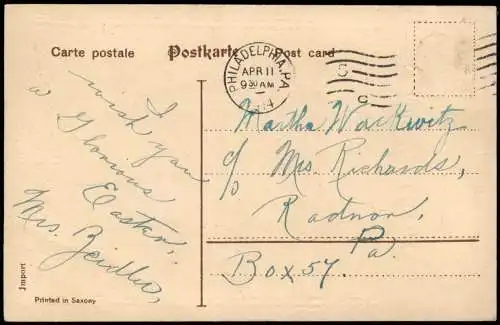 Carte postale Postkarte Post card
PHILADELPHIA, PA.
APR 11
9 30 AM
I
wish you
a Glorious
Easter,
Mrs. Zeidler,
Martha Warkwitz
c/o Mrs. Richards,
Radnor,
Pa.
Box 57.
Jmport
Printed in Saxony